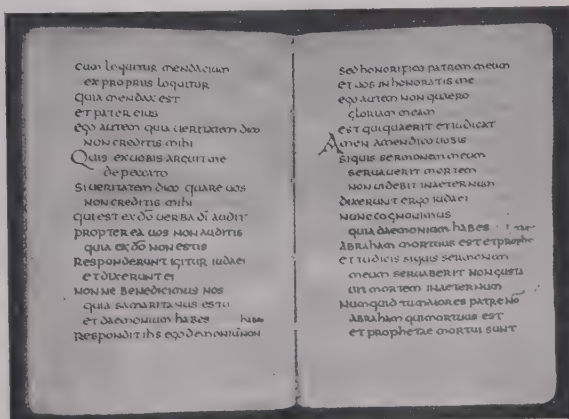 cum loquitur mendacium
ex propriis loquitur
quia mendax est
et pater eius
ego autem quia ueritatem dico
non creditis mihi
Quis ex uobis arguit me
de peccato
si ueritatem dico quare uos
non creditis mihi
qui est ex do̅ uerba di̅ audit
propterea uos non auditis
quia ex do̅ non estis
responderunt igitur iudaei
et dixerunt ei
nonne benedicimus nos
quia samaritanus es tu
et daemonium habes
respondit ihs ego demoniu̅ non
sed honorifico patrem meum
et uos inhonoratis me
ego autem non quaero
gloriam meam
est qui quaerit et iudicat
Amen amen dico uobis
si quis sermonem meum
seruauerit mortem
non uidebit in aeternum
dixerunt ergo iudaei
nunc cognouimus
quia daemonium habes
abraham mortuus est et prophe
et tu dicis si quis sermonem
meum seruaberit non gusta
uit mortem in aeternum
numquid tu maior es patre no
abraham qui mortuus est
et prophetae mortui sunt